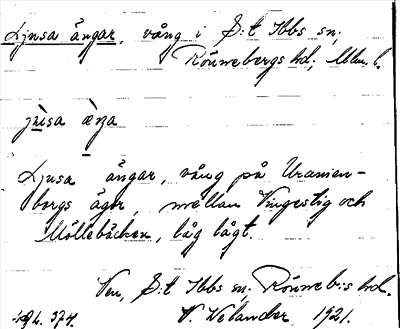 Ljusa ängar, vång i S:t Ibbs sn,
Rönnebergs hd, Mlm. l.
Ljusa ängar, vång på Uranien-
borgs ägor, mellan Vingestig och
Möllebäcken, låg lågt.
Ven, S:t Ibbs sn, Rönneb:s hd.
V. Welander 1921.